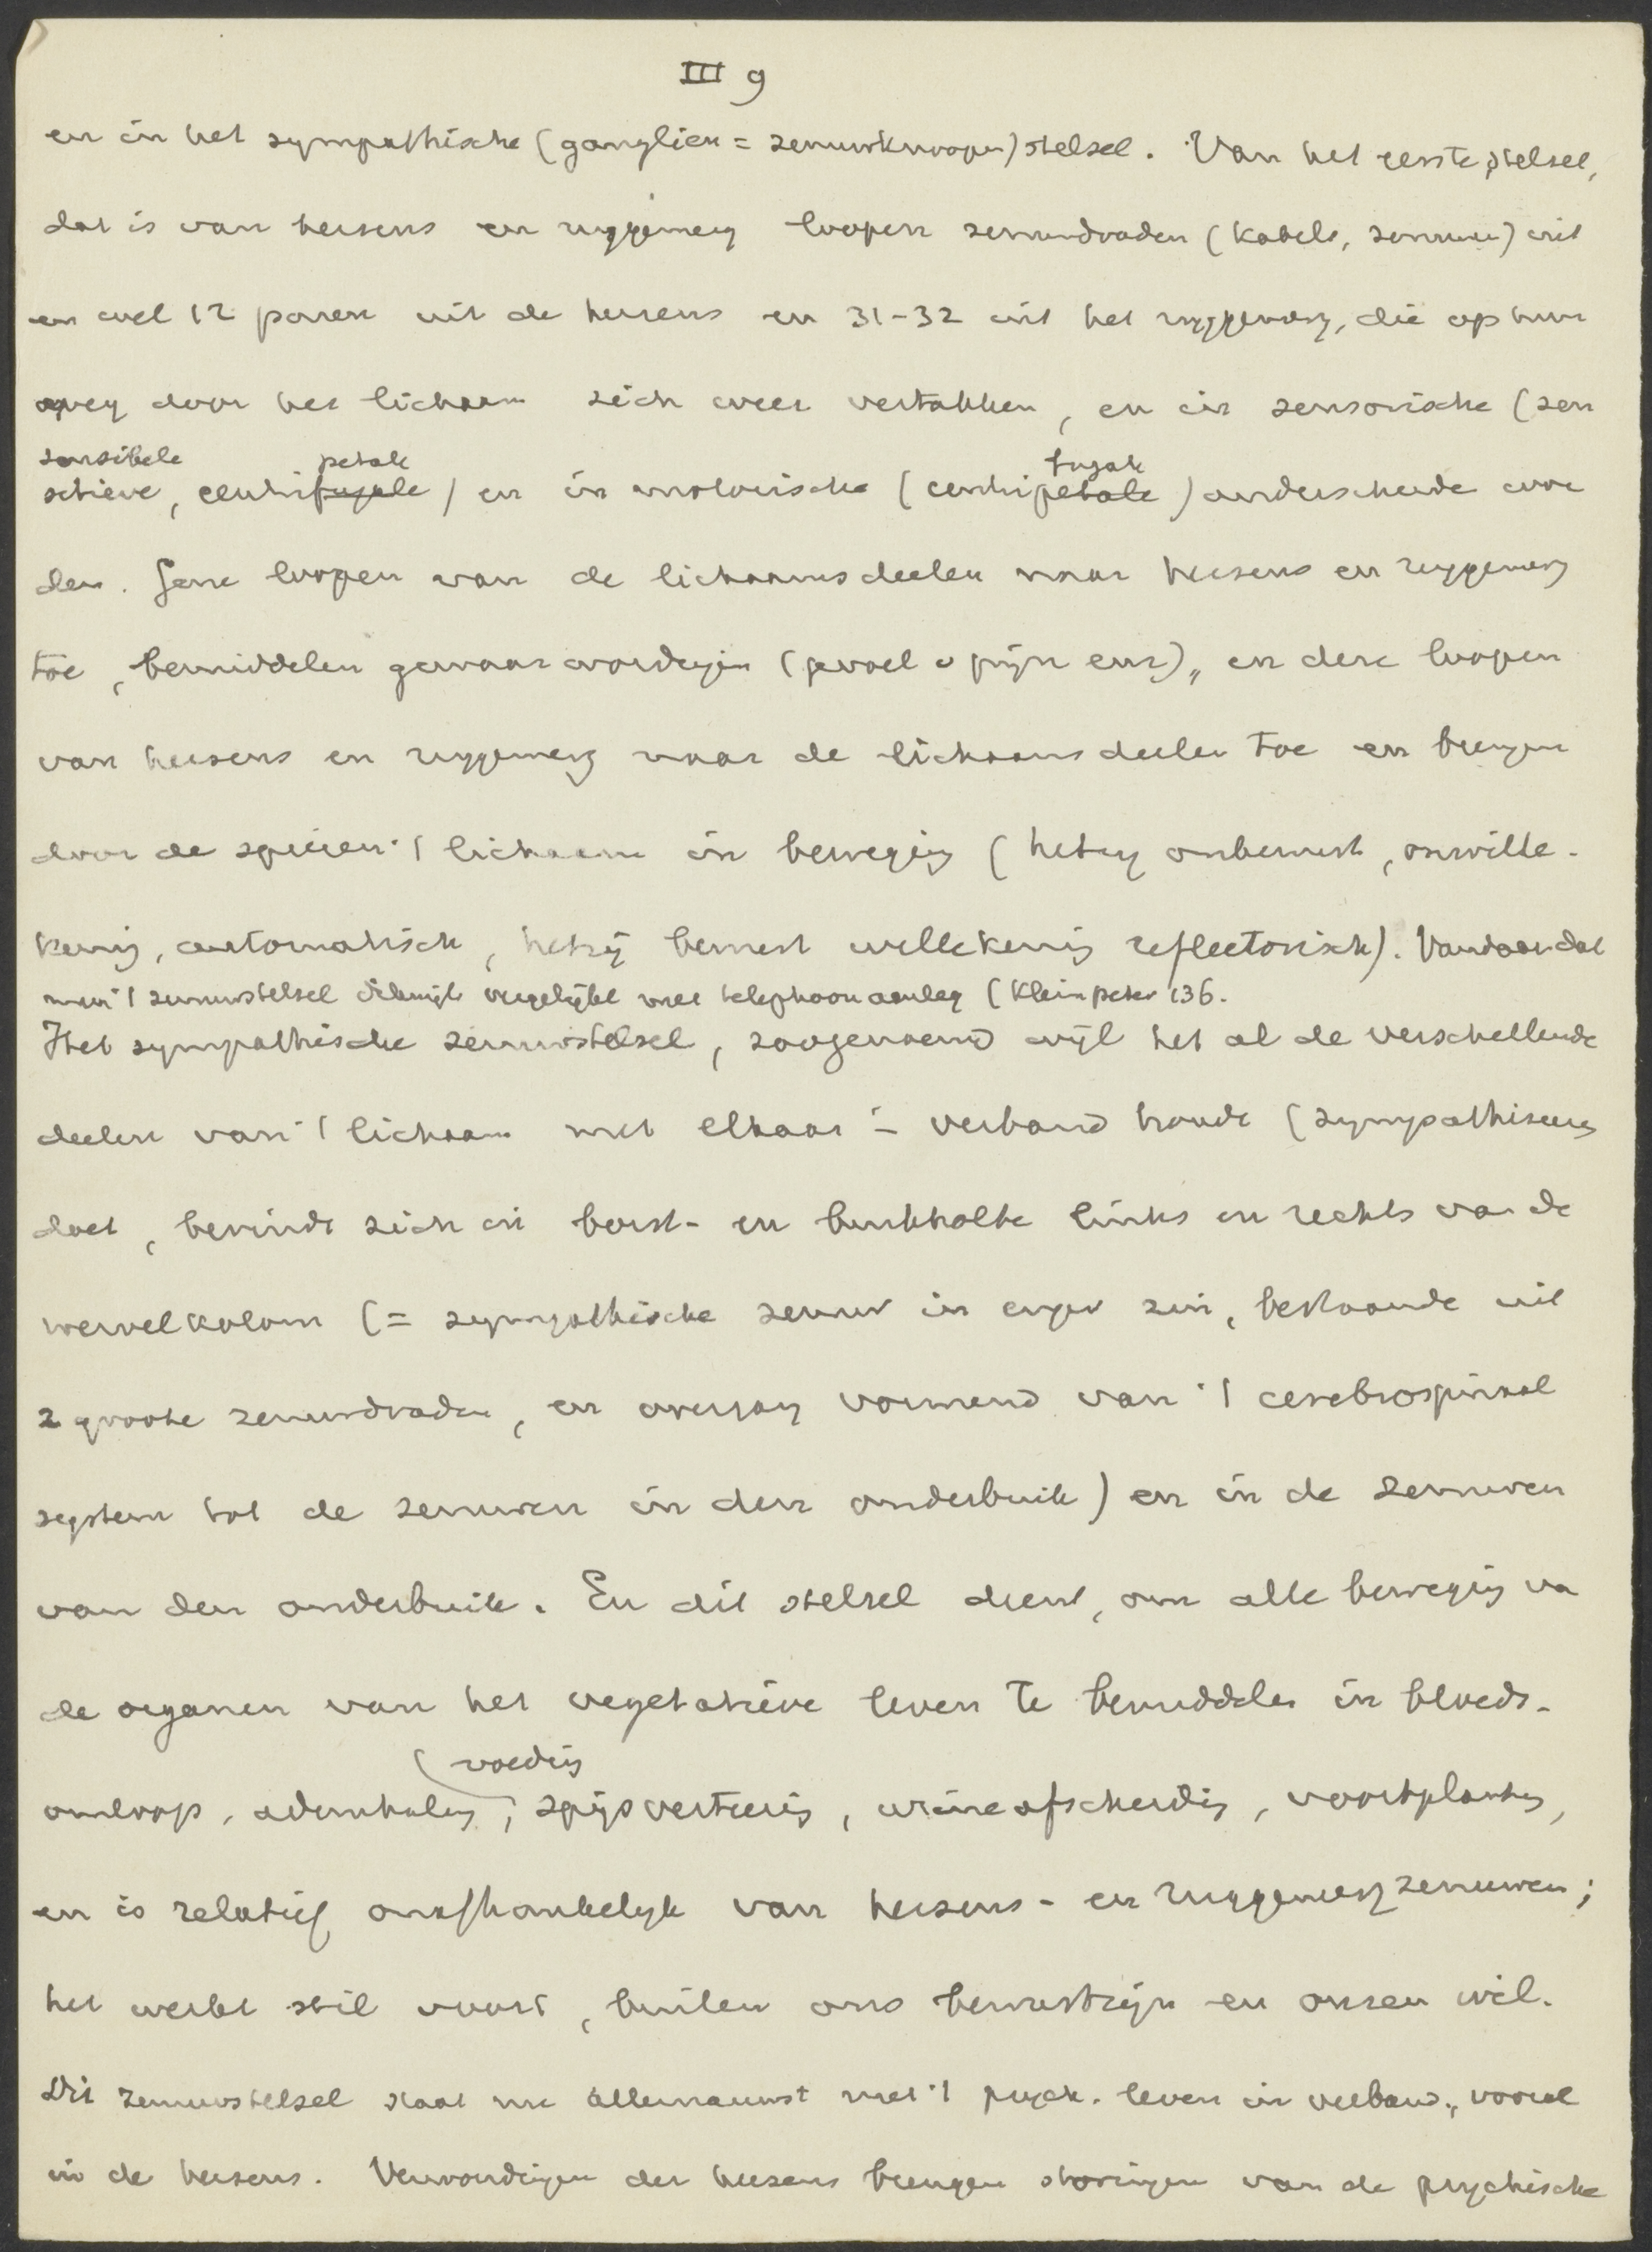 III 9
en in het sympathische (ganglien = zenuwknoopen) stelsel. Van het eerste stelsel,
dat is van hersens en ruggemerg loopen zenuwdraden (kabels, zenuwen) uit
en wel 12 paren uit de hersens en 31-32 uit het ruggemerg, die op hun
weg door het lichaam zich weer vertakken, en in sensorische (sen
sensibele petale
sitieve, centrifugale) en in motorische (centripetale) onderscheide wor
fugale
den. Gene loopen van de lichaamsdeelen naar hersens en ruggemerg
toe, bemiddelen gewaarwordingen (gevoel v pijn enz), en deze loopen
van hersens en ruggemerg naar de lichaamsdeelen toe en brengen
door de spieren 't lichaam in beweging (hetzij onbewust, onwille-
keurig, automatisch, hetzij bewust willekeurig reflectorisch). Vandaar dat
men 't zenuwstelsel dikwijls vergelijkt met telephoonaanleg (Kleinpeter 136.
Het sympathische zenuwstelsel, zoogenaemd wijl het al de verschellende
deelen van 't lichaam met elkaar in verband houdt (sympathiseeren
doet, bevindt zich in borst- en buikholte links en rechts van de
wervelkolom (= sympathische zenuw in enger zin, bestaande uit
2 groote zenuwdraden, en overgang vormend van 't cerebrospinaal
system tot de zenuwen in den onderbuik) en in de zenuwen
van den onderbuik. En dit stelsel dient, om alle beweging va
de organen van het vegetatieve leven te bemiddelen in bloeds-
(voeding
omloop, ademhaling, spijsvertering, urineafscheiding, voortplanting,
en is relatief onafhankelijk van hersens- en ruggemergzenuwen;
het werkt stil voort, buiten ons bewustzijn en onzen wil.
Dit zenuwstelsel staat nu allernauwst met 't psych. leven in verband, vooral
in de hersens. Verwondingen der hersens brengen storingen van de psychische